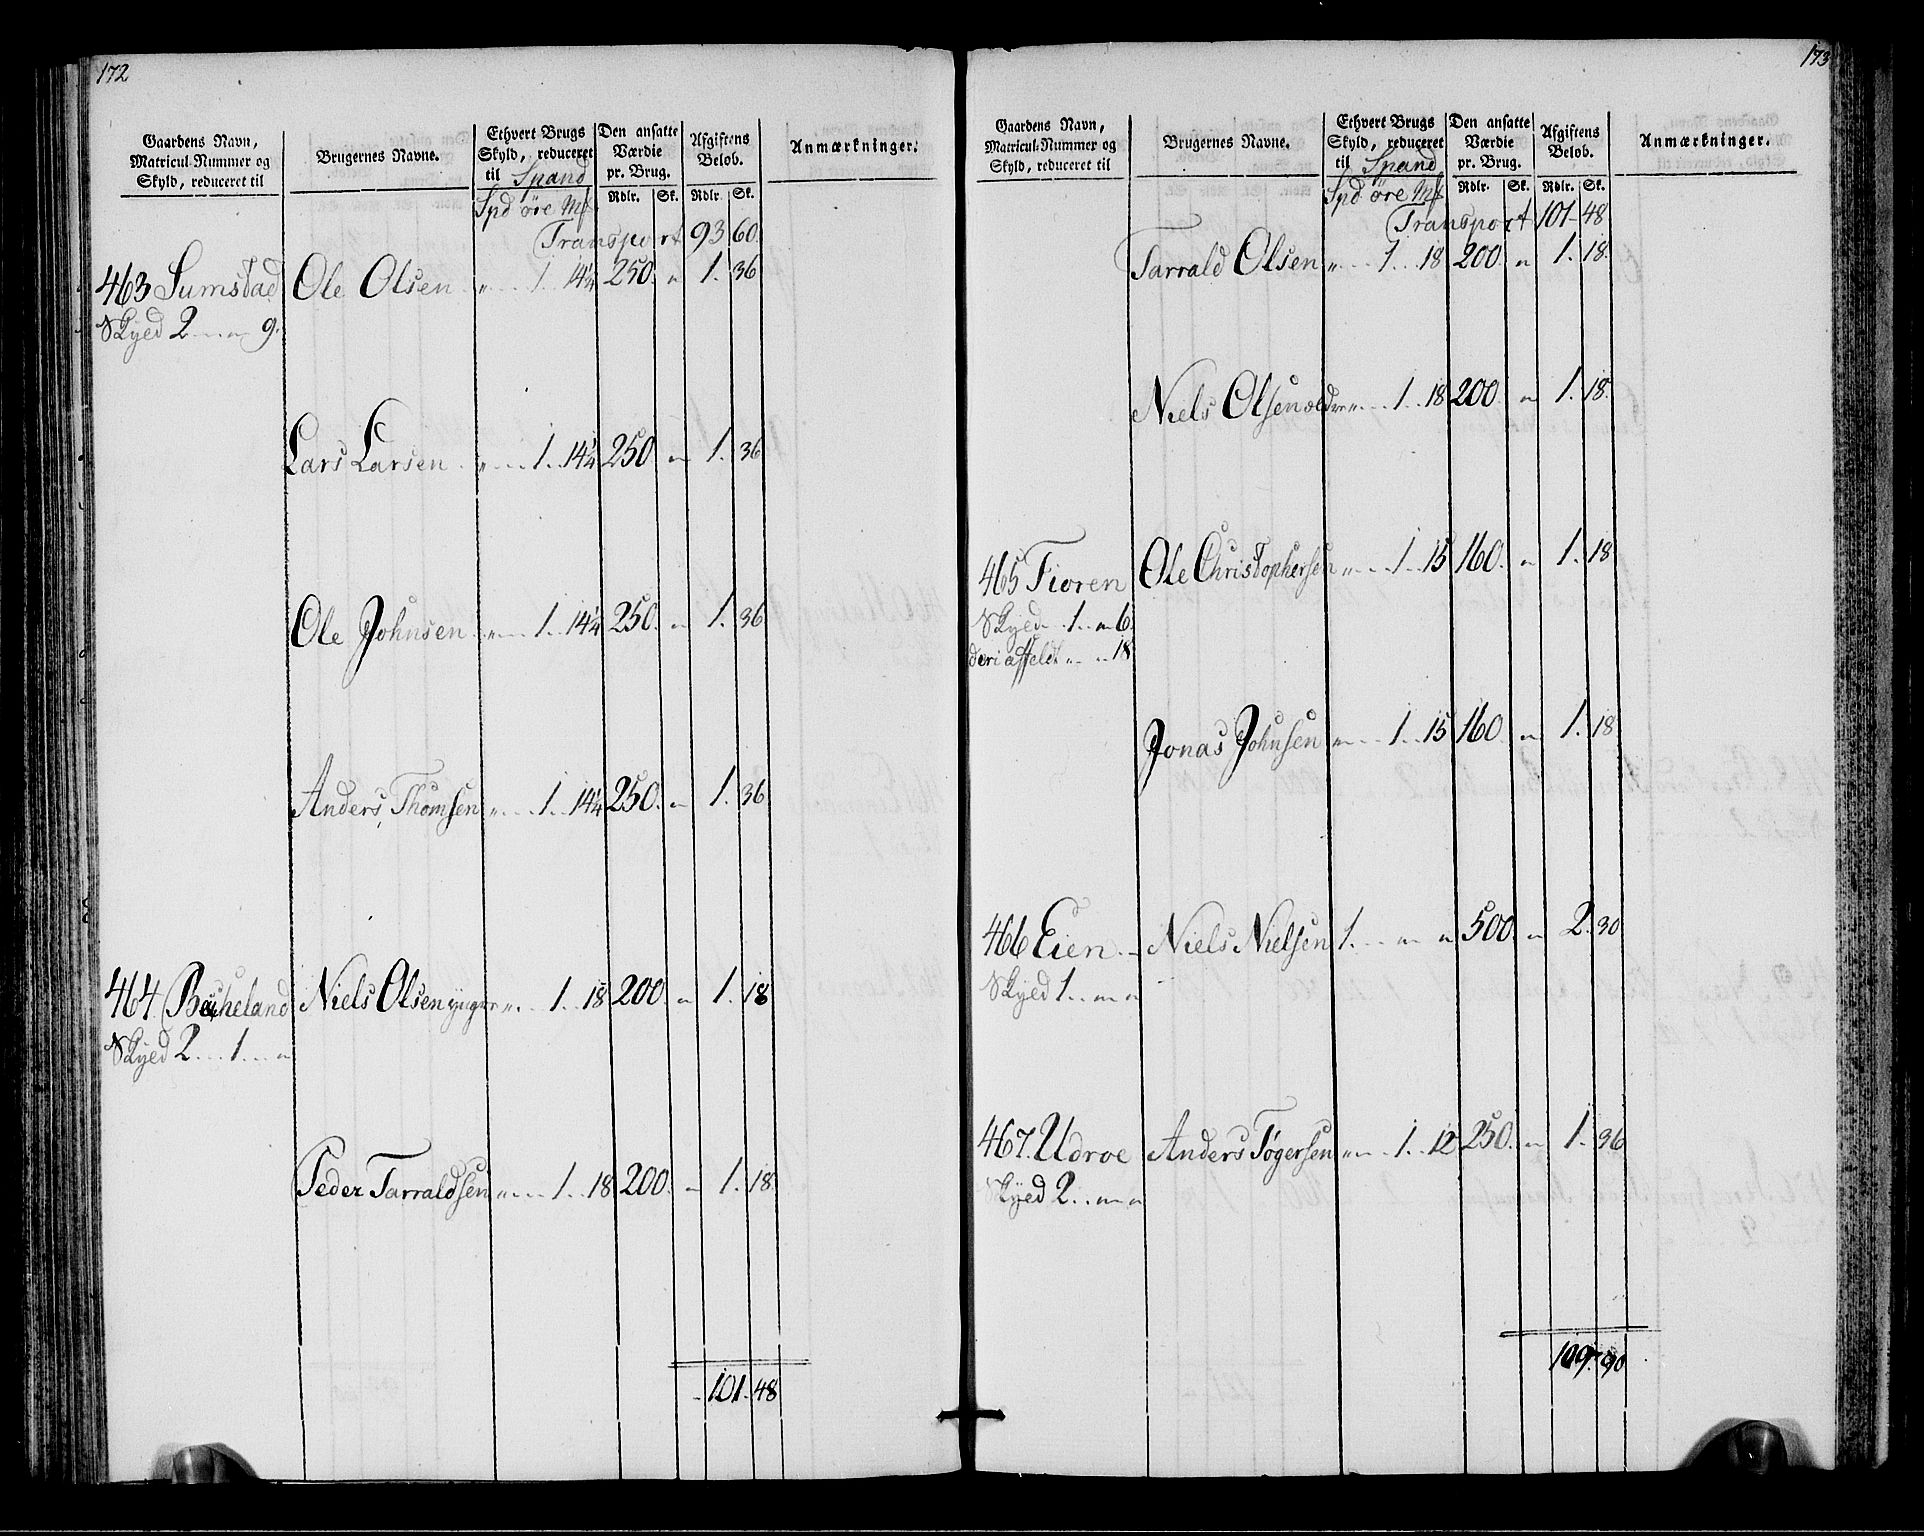 172
Gaardens Navn, Matricul-Nummer og Skyld, reduceret til
Brugernes Navne.
Ethvert Brugs Skyld, reduceret til Spand
Den ansatte Værdie pr. Brug.
Afgiftens Belob.
Anmærkninger.
Spd öre Mk Rdlr. Sk. Rdlr. Sk.
Transport 93 60.
463 Sumstad Ole Olsen „ 1 14¼ 250. „ 1. 36
Skyld 2 „ 9.
Lars Larsen „ 1 14¼ 250 „ 1. 36
Ole Johnsen „ 1 14¼ 250. „ 1. 36
Anders Thomsen „ 1 14¼ 250. „ 1. 36
464 Niels Olsen yngre „ 1 18 200. „ 1. 18
Skyld 2 1 „
Peder Tarraldsen „ 1 18 200. „ 1. 18
101 48
173
Gaardens Navn, Matricul-Nummer og Skyld, reduceret til
Brugernes Navne.
Ethvert Brugs Skyld, reduceret til Spand
Den ansatte Værdie pr. Brug.
Afgiftens Belob.
Anmærkninger.
Spd öre Mk Rdlr. Sk. Rdlr. Sk.
Transport 101 48
Tarrald Olsen „ 1 18 200. „ 1. 18.
Niels Olsen ældre „ 1 18 200. „ 1. 18.
465 Fioren Ole Christophersen „ 1 15 160. „ 1. 18
Skyld 1 „ 6.
deri affeldt „ „ 18
Jonas Johnsen „ 1 15 160. „ 1. 18
466 Eien Niels Nielsen 1. „ „ 500. „ 2. 30
Skyld 1 „ „
467. Udroe Anders Tøgersen „ 1 12 250. „ 1. 36
Skyld 2 „ „
109. 90